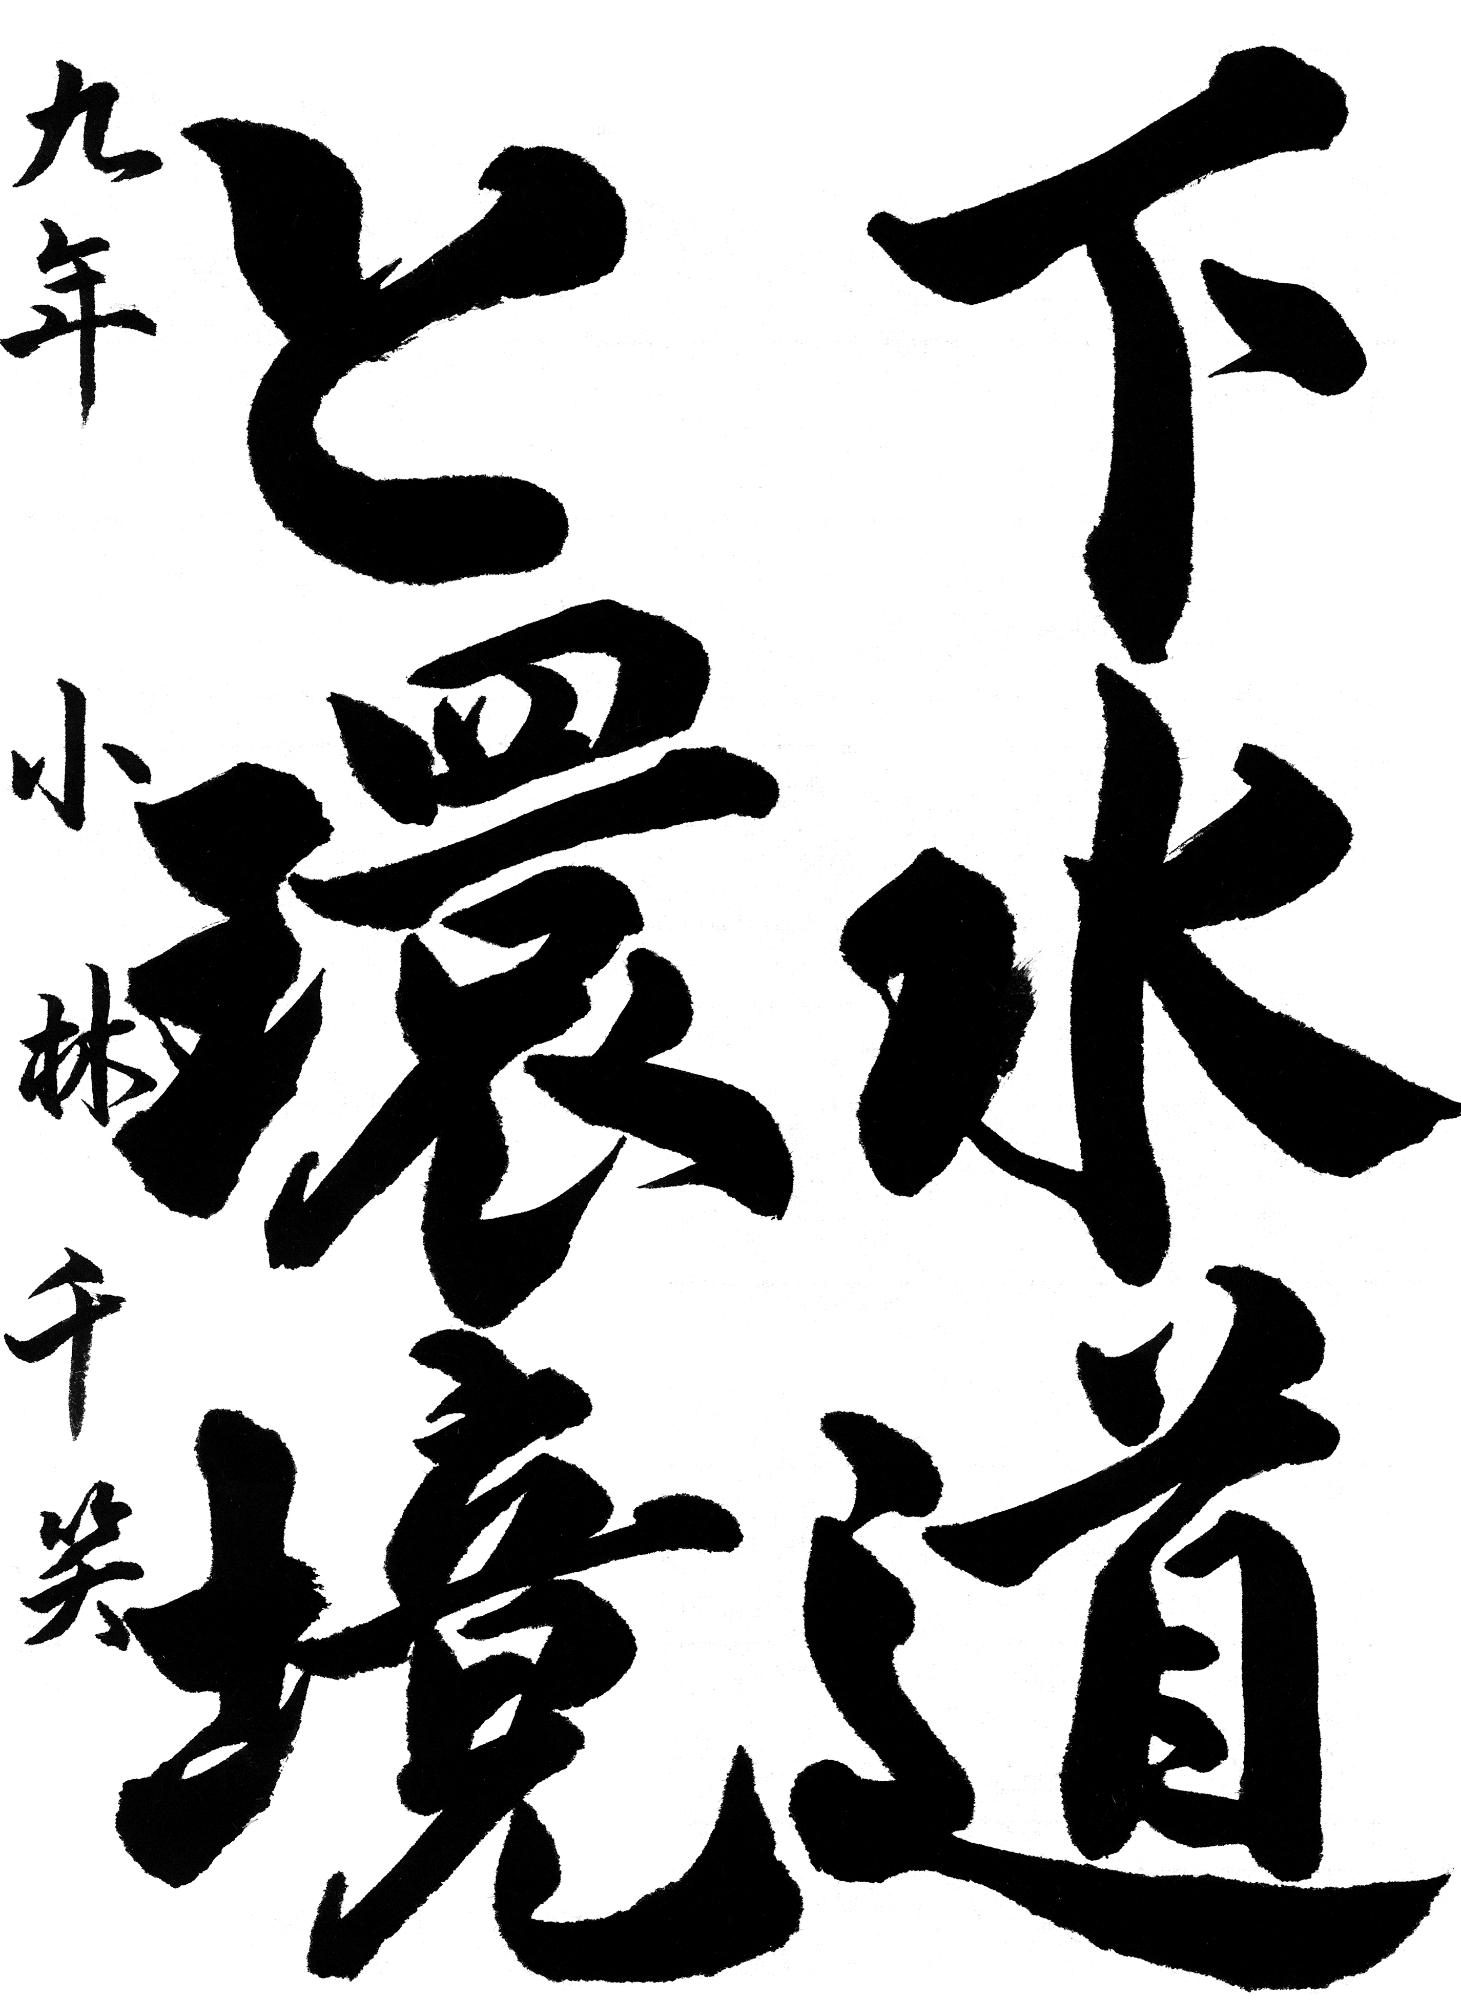 下水道
と環境
九年 小林千笑